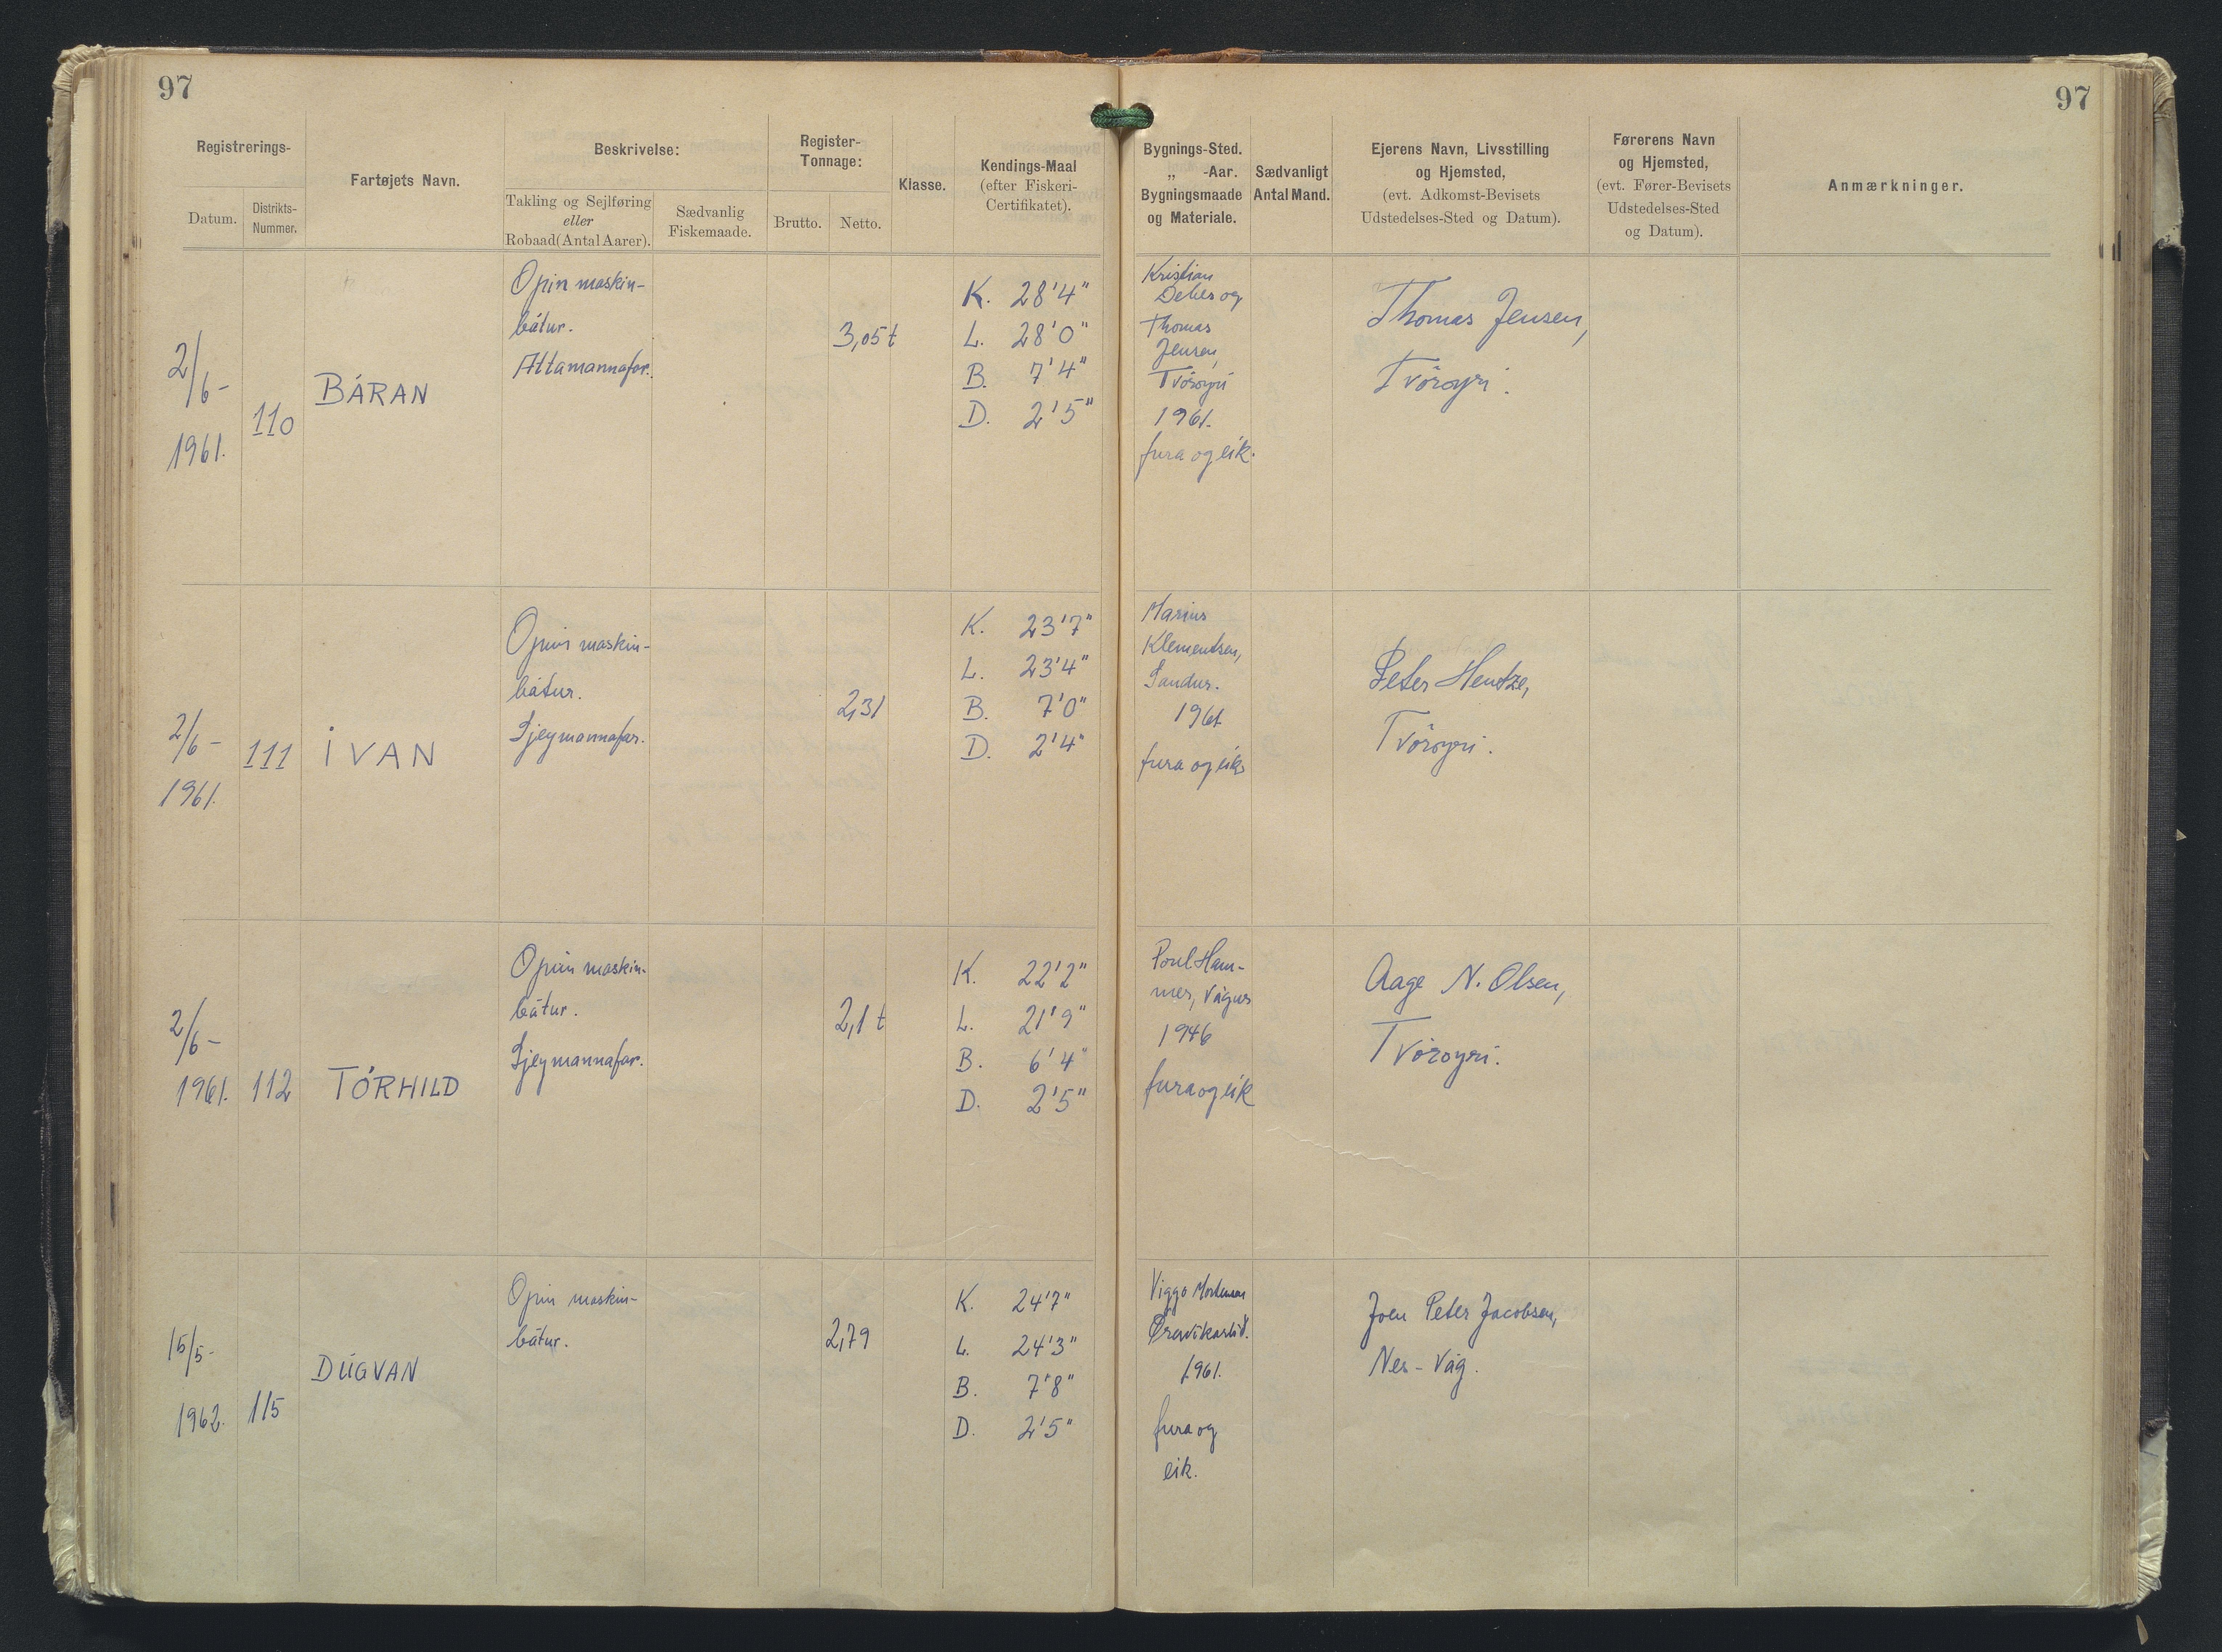 97
97
Registrerings-
Datum.
Distrikts-
Nummer.
Fartøjets Navn.
Beskrivelse:
Takling og Sejlføring
eller
Robaad (Antal Aarer).
Sædvanlig
Fiskemaade.
Register-
Tonnage:
Brutto.
Netto.
Klasse.
Kendings-Maal
(efter Fiskeri-
Certifikatet).
Bygnings-Sted.
„ -Aar.
Bygningsmaade
og Materiale.
Sædvanligt
Antal Mand.
Ejerens Navn, Livsstilling
og Hjemsted,
(evt. Adkomst-Bevisets
Udstedelses-Sted og Datum).
Førerens Navn
og Hjemsted,
(evt. Fører-Bevisets
Udstedelses-Sted
og Datum).
Anmærkninger.
2/6-
1961.
110
BÁRAN
Opin maskin-
bátur.
Áttamannafar.
3,05 t
K. 28'4"
L. 28'0"
B. 7'4"
D. 2'5"
Kristian
Debes og
Thomas
Jensen,
Tvöroyri
1961.
fura og eik.
Thomas Jensen,
Tvöroyri.
2/6-
1961.
111
ÍVAN
Opin maskin-
bátur.
Sjeymannafar.
2,31
K. 23'7"
L. 23'4"
B. 7'0"
D. 2'4"
Marius
Klementsen,
Sandur.
1961
fura og eik
Peter Hentze,
Tvöroyri.
2/6-
1961.
112
TÓRHILD
Opin maskin-
bátur.
Sjeymannafar.
2,1 t
K. 22'2"
L. 21'9"
B. 6'4"
D. 2'5"
Poul Ham-
mer, Vágur
1946
fura og eik
Aage N. Olsen,
Tvöroyri.
15/5-
1962.
115
DÚGVAN
Opin maskin-
bátur.
2,79
K. 24'7"
L. 24'3"
B. 7'8"
D. 2'5"
Viggo Mortensen
1961.
fura og
eik.
Joen Peter Jacobsen,
Nes-Vág.